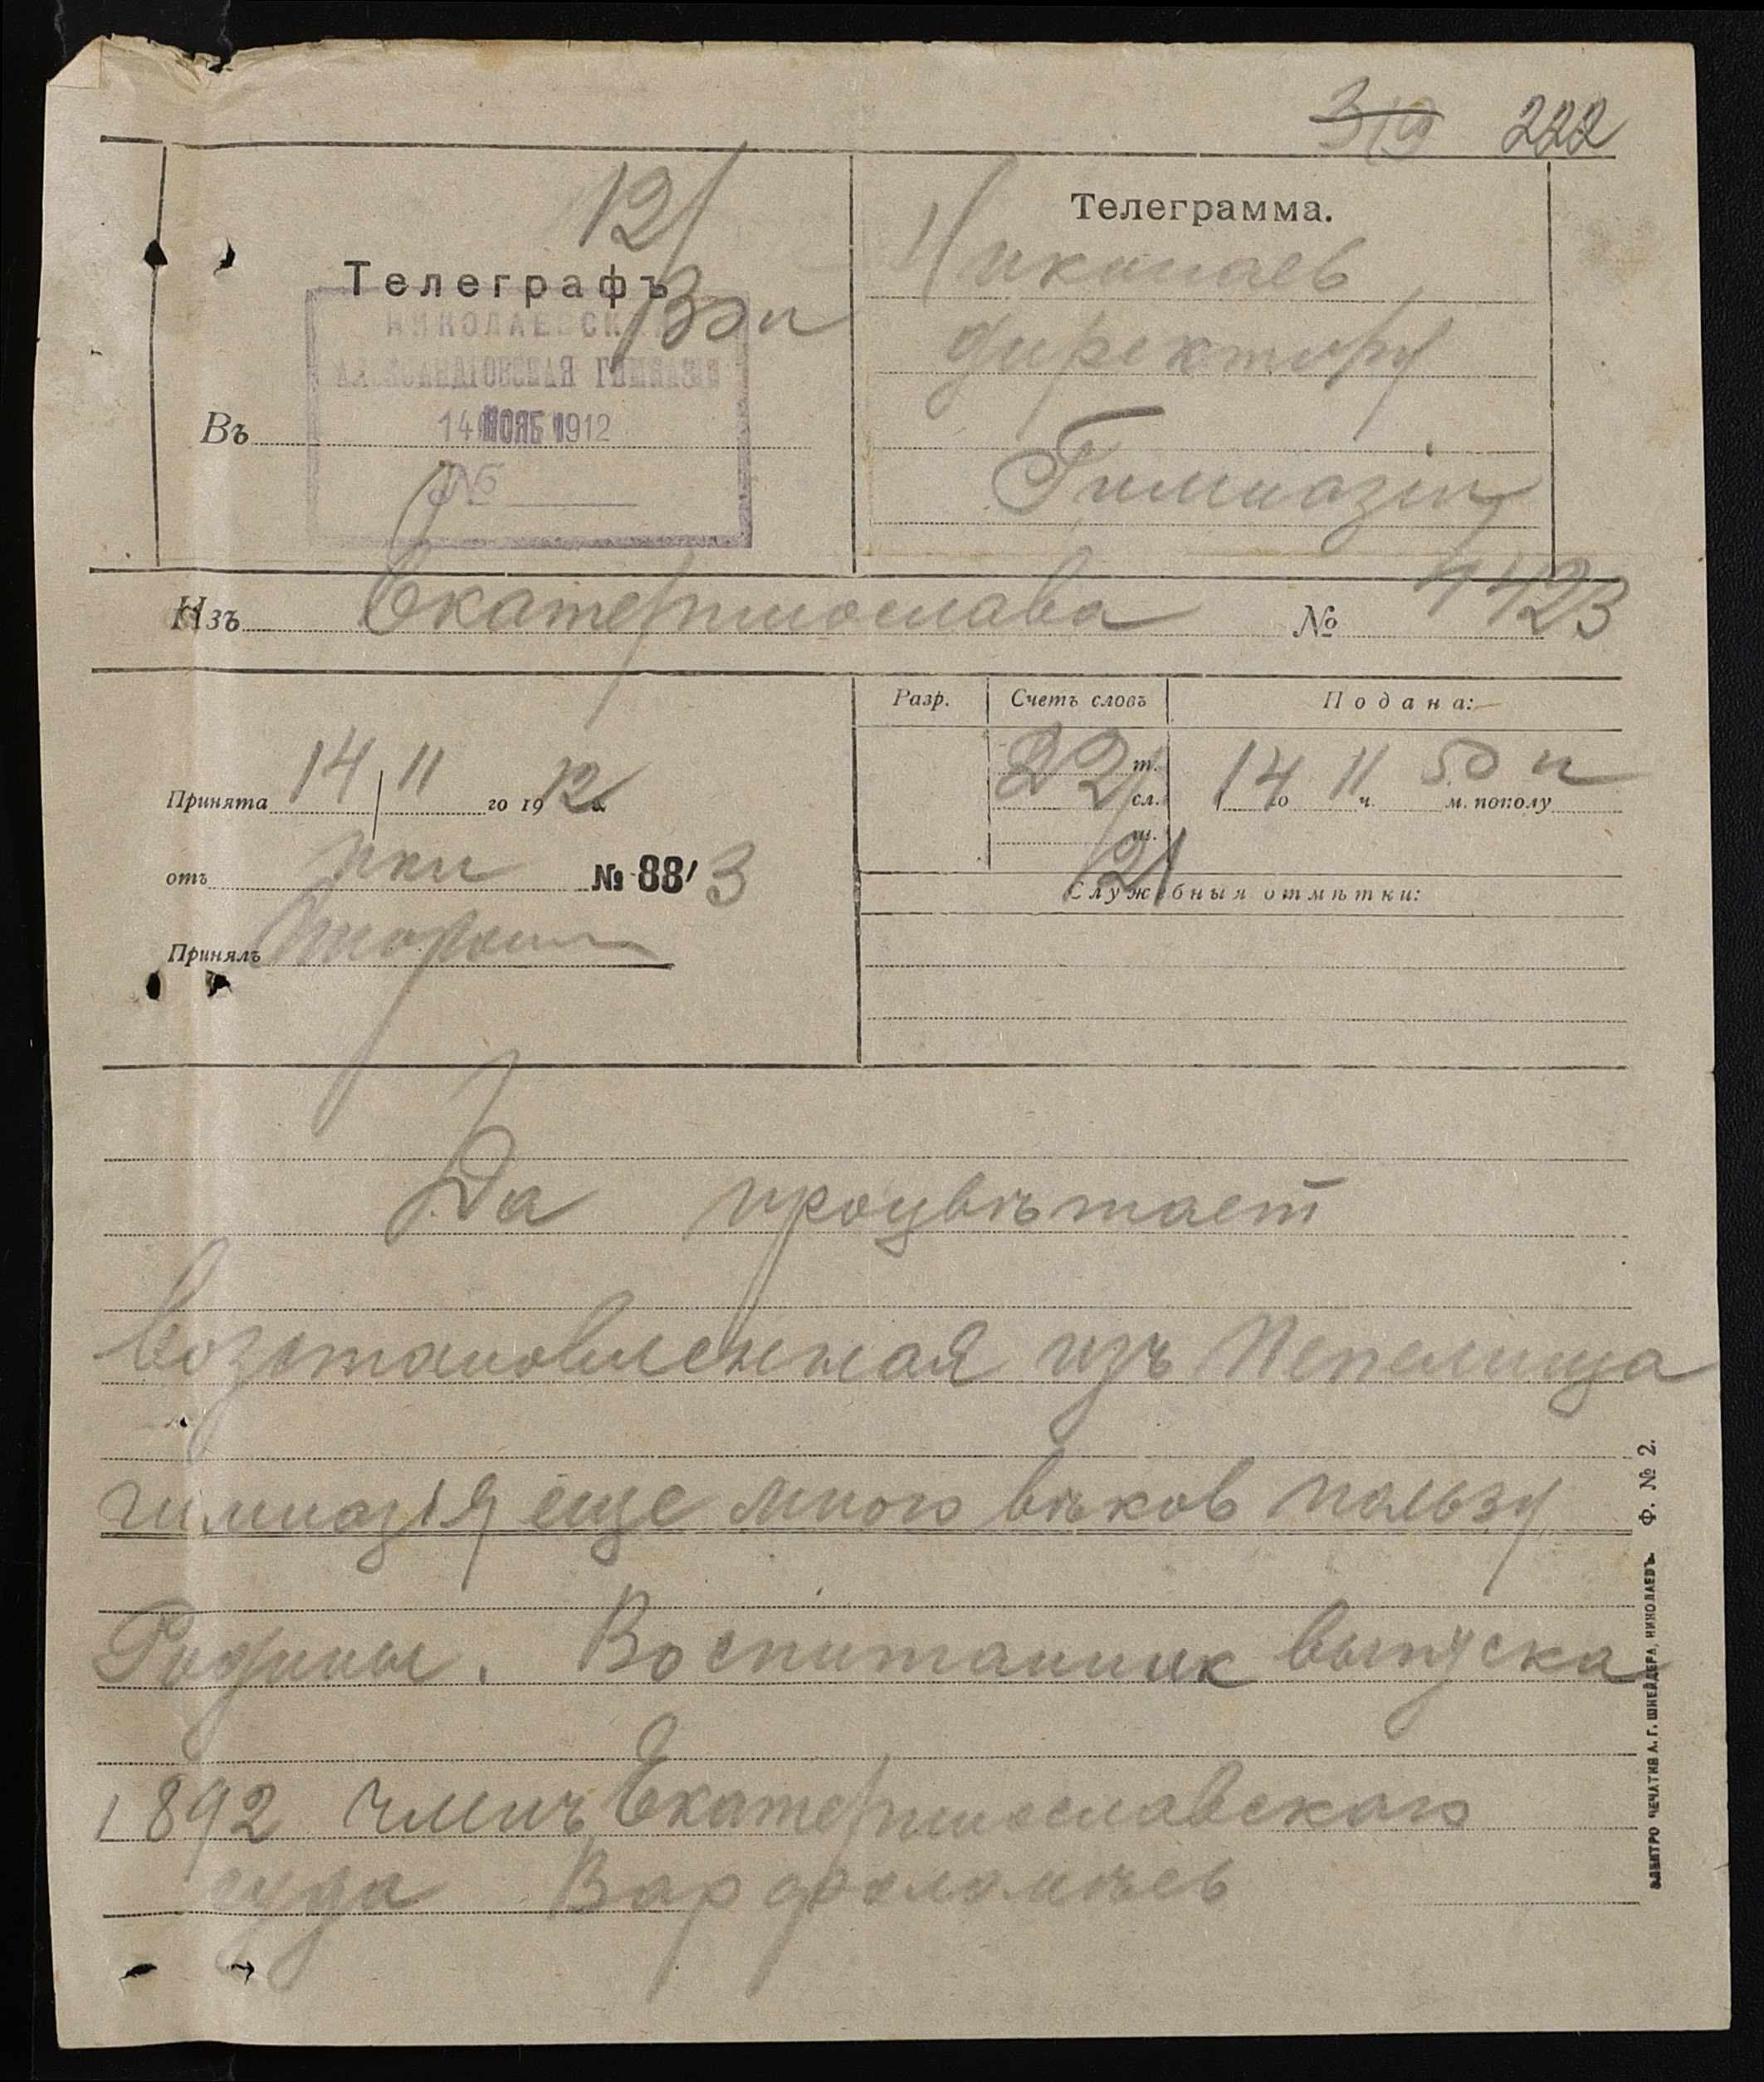 319 222
12/
Телеграфъ
13 п
НИКОЛАЕВСКАЯ
АЛЕКСАНДРОВСКАЯ ГИМНАЗIЯ
14 НОЯБ 1912
№
Въ
Телеграмма.
Николаев
директору
Гимназiи
Изъ Екатеринослава № 4423
Принята 14/11 го 1912
от нки № 8813
Принялъ
Разр. Счетъ словъ Подана:
22 т. сл. ш. 14 го 11 ч. 50 м. пополу п
12/
Служебныя отмѣтки:
Да процвѣтает
Возстановленная изъ Пепелища
гимназiя еще много вѣков пользу
Родины. Воспитанник выпуска
1892 членъ Екатеринославского
суда Варфоломѣев
ЭЛЕКТРО ПЕЧАТНЯ А. Г. ШНЕЙДЕРА, НИКОЛАЕВЪ. Ф. № 2.